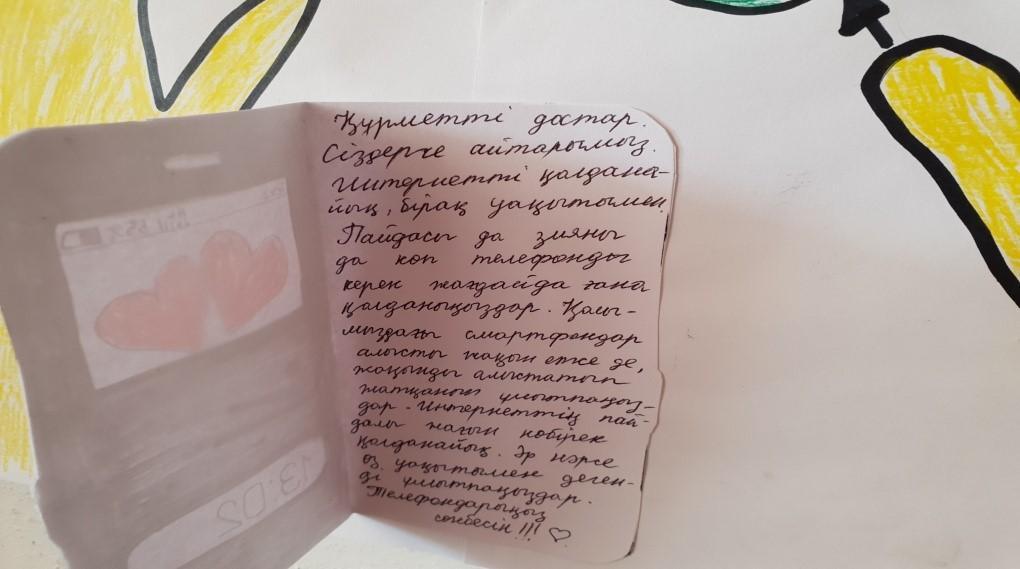 Құрметті достар.
Сіздерге айтарымыз.
Интернетті қолдана-
йық, бірақ уақытымен.
Пайдасы да зияны
да көп телефонды
керек жағдайда ғана
қолданыңыздар. Қасы-
мыздағы смартфондар
алысты жақын етсе де,
жақынды алыстатып
жатқанын ұмытпаңыз-
дар. Интернеттің пай-
далы жағын көбірек
қолданайық. Әр нәрсе
өз уақытымен деген-
ді ұмытпаңыздар.
Телефондарыңыз
сөнбесін!!! ♡
55%
13:02